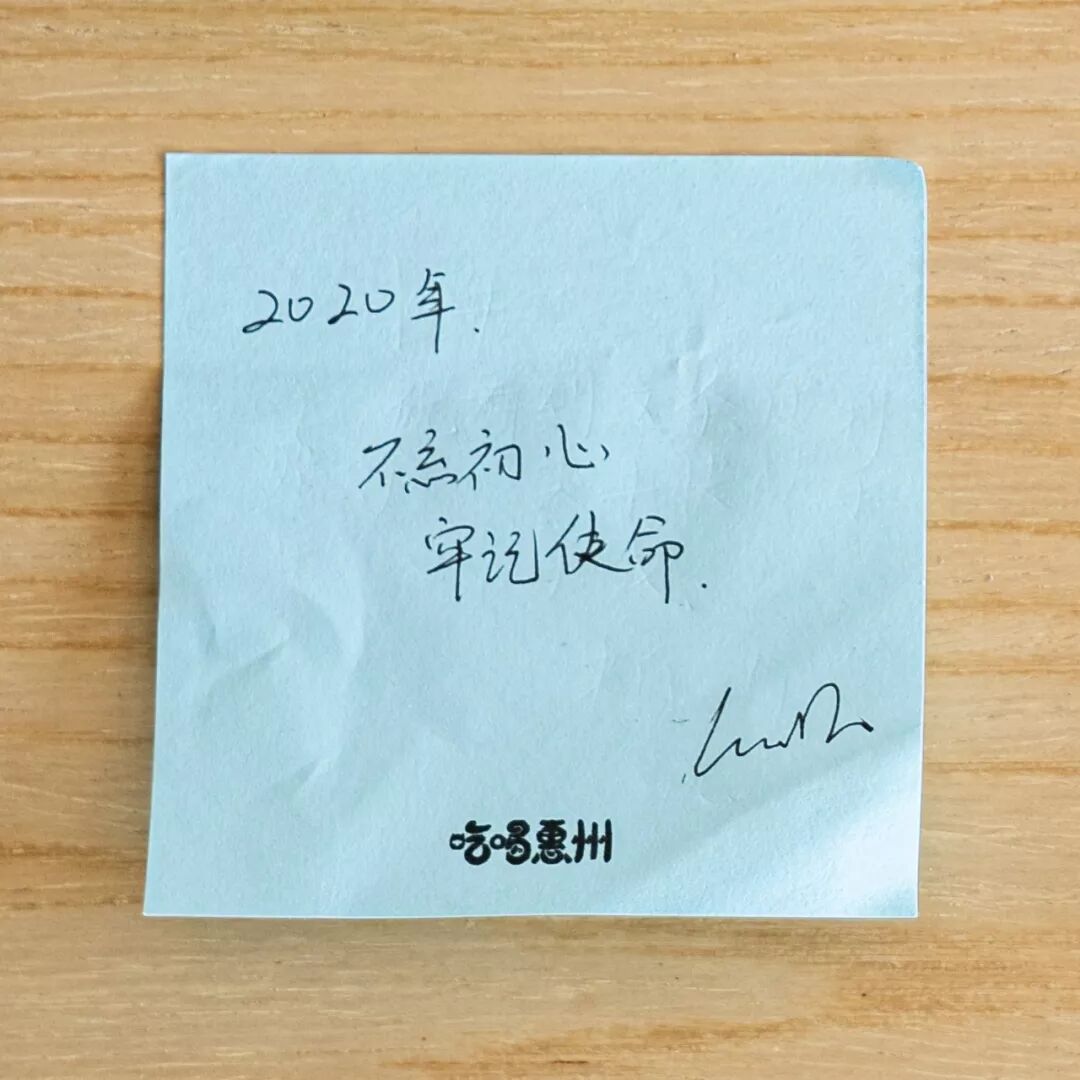 2020年.
不忘初心
牢记使命.
吃喝惠州